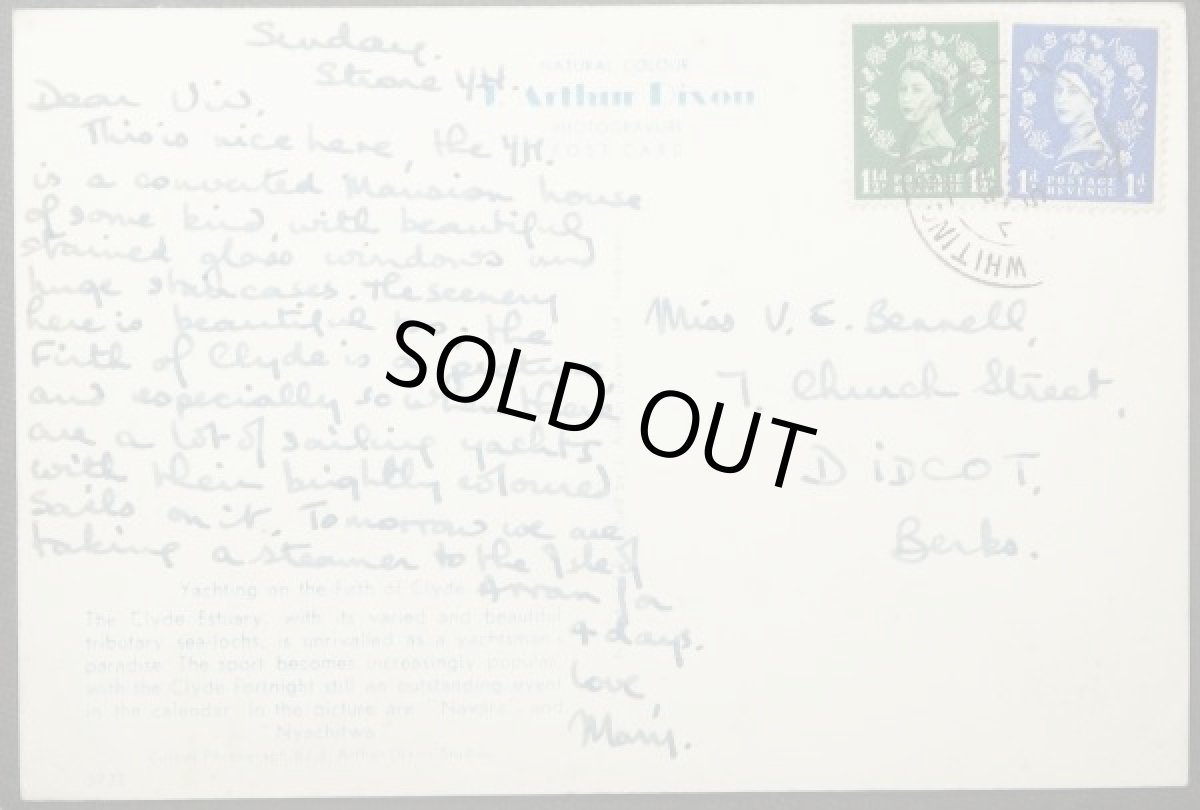 Sunday.
Strone YH.
Dear Viv,
This is nice here, the YH.
is a converted Mansion house
of some kind, with beautiful
stained glass windows and
huge staircases. The scenery
here is beautiful too. The
Firth of Clyde is
and especially so when there
are a lot of sailing yachts
with their brightly coloured
sails on it. Tomorrow we are
taking a steamer to the Isle of
Arran for
4 days.
Love
Mary.
NATURAL COLOUR
J Arthur Dixon
PHOTOGRAVURE
POST CARD
1½d POSTAGE REVENUE 1½d
1d POSTAGE REVENUE 1d
WHITING
Miss V. E. Bennell,
7, Church Street,
DIDCOT.
Berks.
SOLD OUT
Yachting on the Firth of Clyde
The Clyde Estuary, with its varied and beautiful
tributary sea-lochs, is unrivalled as a yachtsman's
paradise. The sport becomes increasingly popular,
with the Clyde Fortnight still an outstanding event
in the calendar. In the picture are "Navara" and